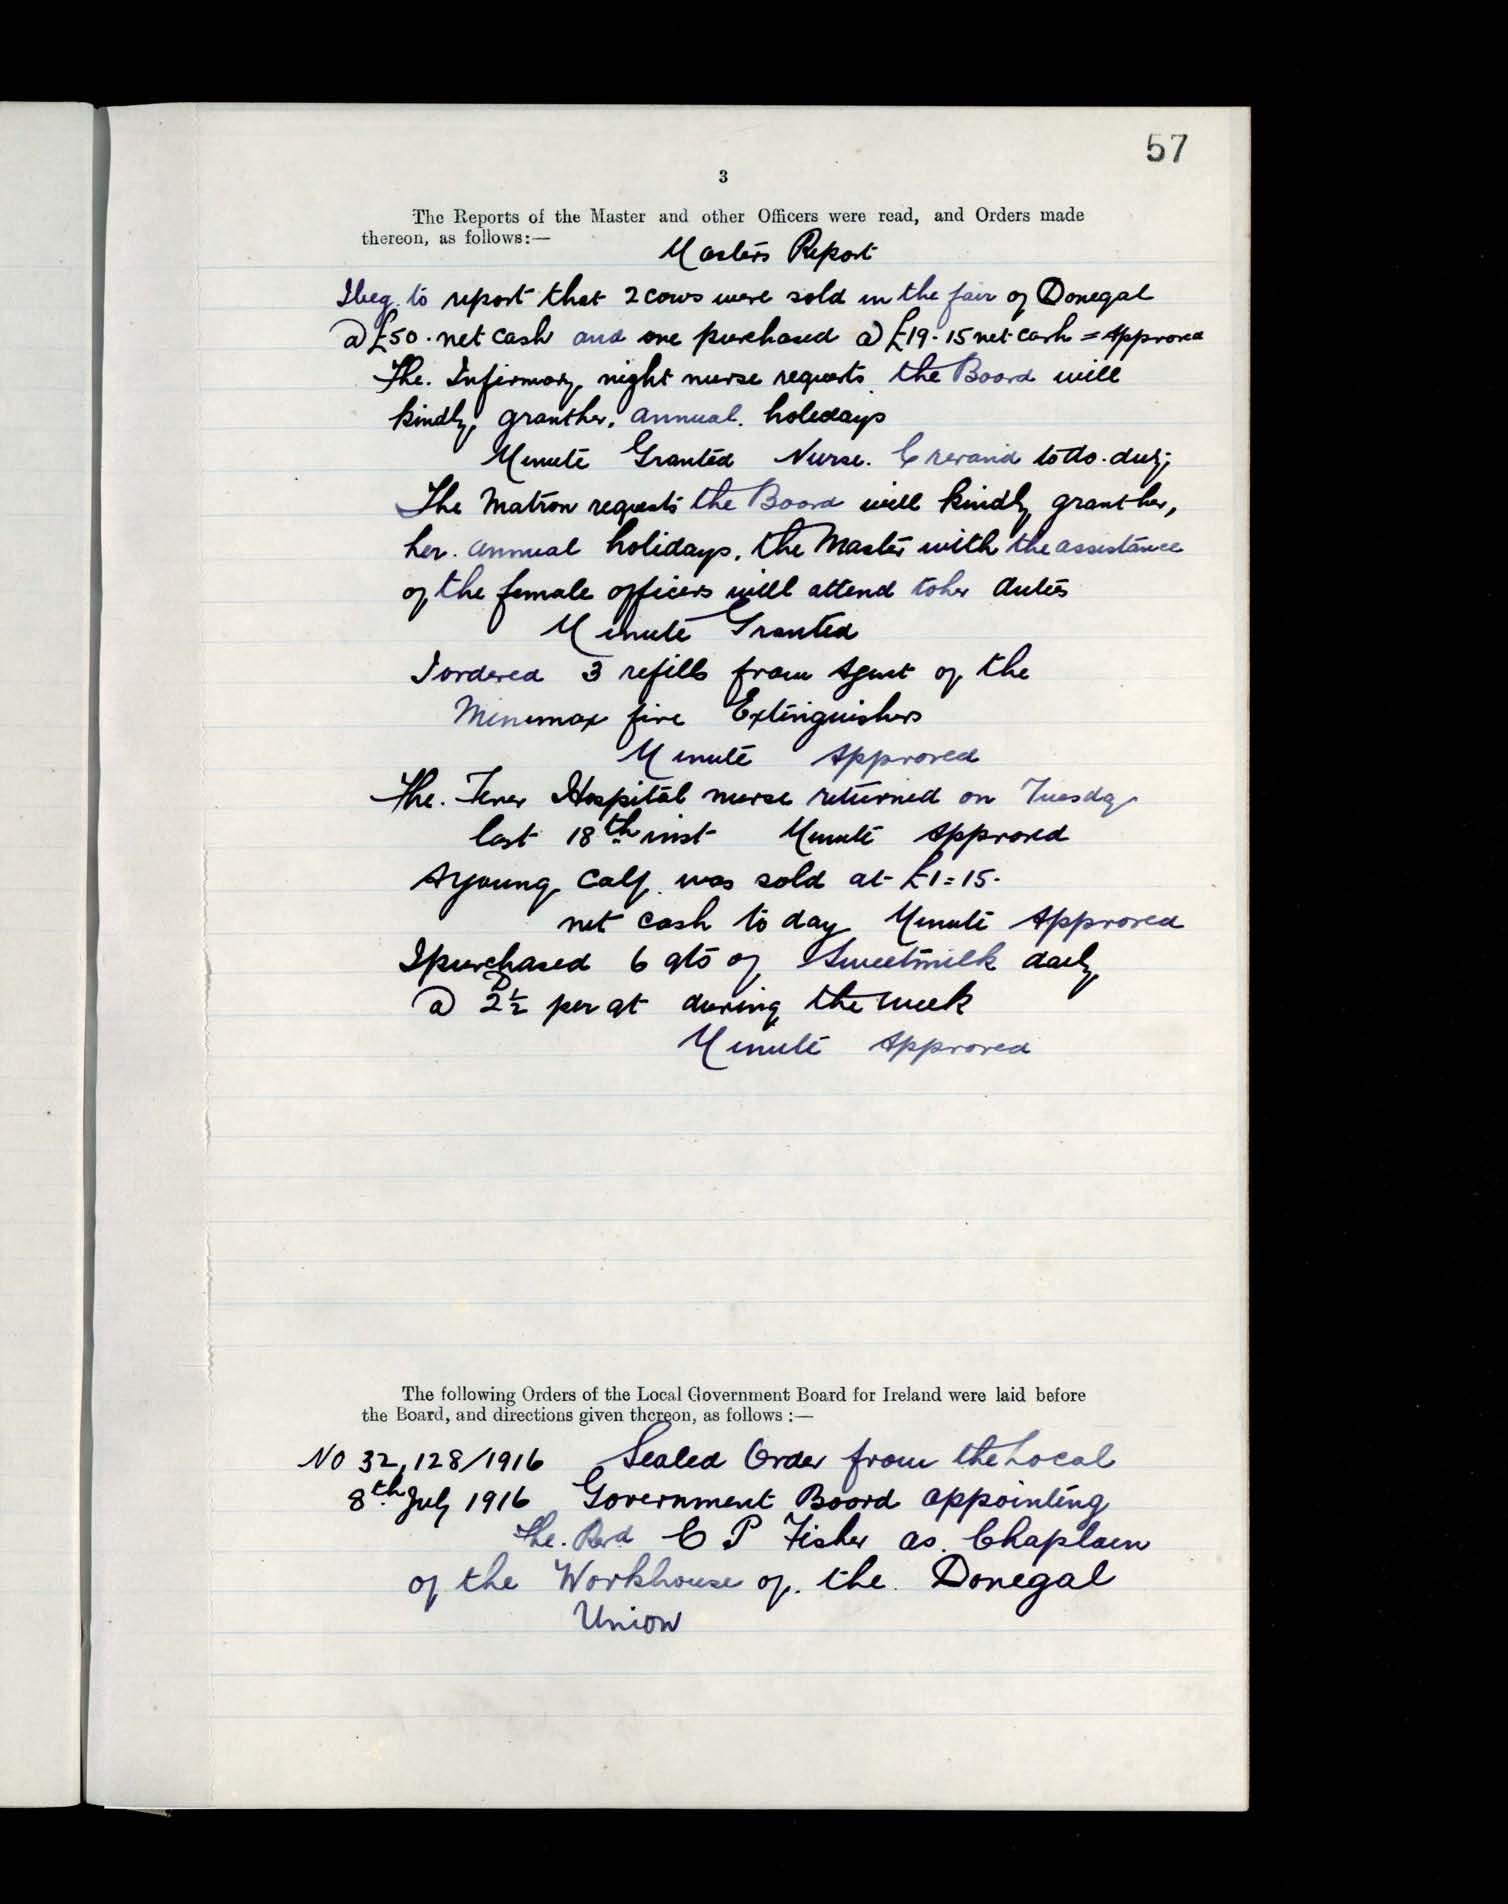 57
3
The Reports of the Master and other Officers were read, and Orders made
thereon, as follows:—
Masters Report
I beg to report that 2 cows were sold in the fair of Donegal
@ £50. net cash and one purchased @ £19-15 net cash = Approved
The Infirmary night nurse requests the Board will
kindly grant her, annual holedays
Minute Granted Nurse to do duty
The Matron requests the Board will kindly grant her,
her annual holidays, the Master with the assistance
of the female officers will attend to her duties
Minute Granted
I ordered 3 refills from Agent of the
Minimax fire Extinguishers
Minute Approved
The Fever Hospital nurse returned on Tuesday
last 18th inst Minute Approved
A young calf was sold at £1=15.
net cash to day Minute Approved
I purchased 6 qts of Sweetmilk daily
@ 2½D per qt during the week
Minute Approved
The following Orders of the Local Government Board for Ireland were laid before
the Board, and directions given thereon, as follows :—
No 32,128/1916 Sealed Order from the Local
8th July 1916 Government Board appointing
The Revd C P Fisher as Chaplain
of the Workhouse of the Donegal
Union